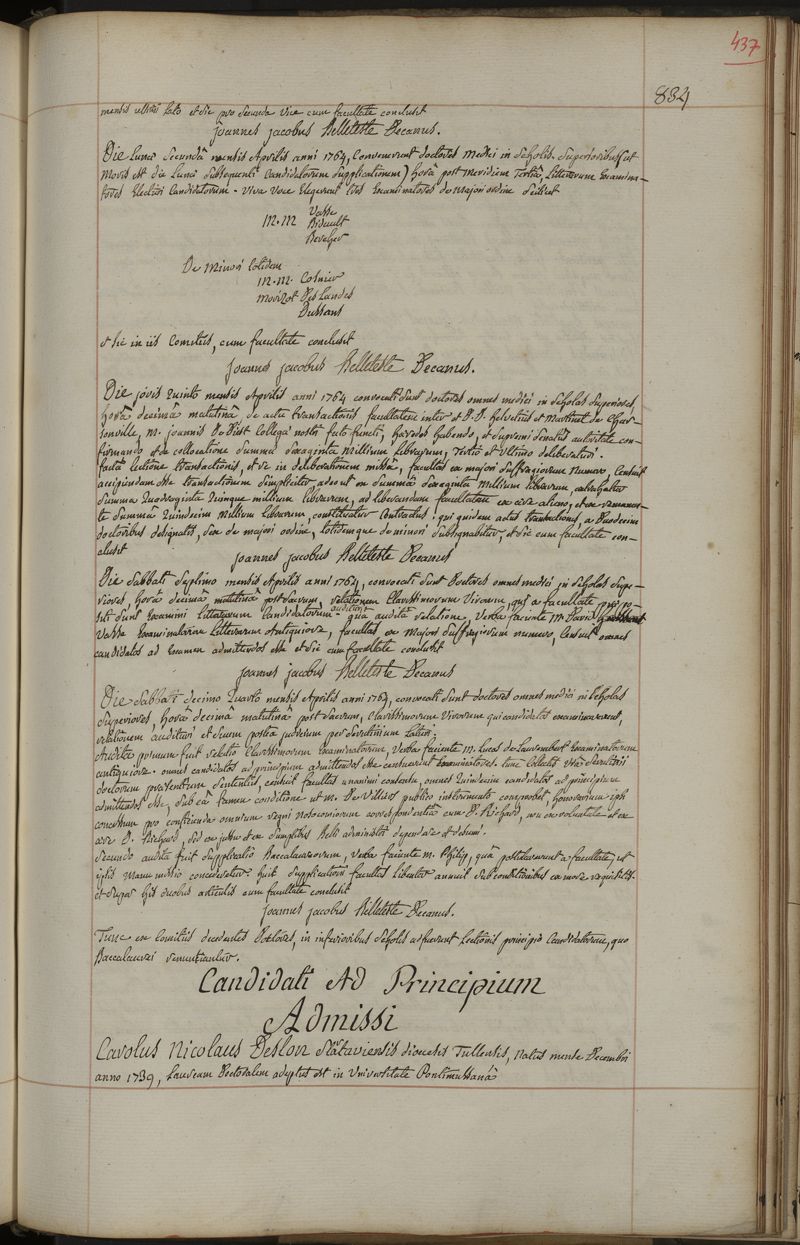 437
834
mensis ultimi lato et sic pro secunda vice cum facultate conclusit
joannes jacobus Belleteste Decanus.
Die lunæ secundâ mensis Aprilis anni 1764, convenerunt doctores medici in scholis superioribus (ut
moris est die Lunæ subsequenti Candidatorum supplicationem) horâ post meridiem tertiâ, litterarum examina-
tores Electuri Candidatorum. viva voce Elegerunt tres Examinatores de majori ordine scilicet
M.M Vasse
Bidault
Bevalzer
De minori totidem
M.M. Cosnier
morizot Deslandes
Dussans
et sic in iis Comitiis, cum facultate conclusit
joannes jacobus Belleteste Decanus.
Die jovis quinto mensis Aprilis anni 1764 convocati sunt doctores omnes medici in scholas superiores,
horâ decimâ matutinâ de actu transactionis facultatem inter et D.D. helvetius et Martinet de Char-
sonville, M. joannis De Diest Collegæ nostri fato functi, hæredes habendo, et supremi senatus autoritate con-
firmando et de collocatione summæ sexaginta millium librarum, tertio et ultimo deliberaturi.
facta lectione transactionis, et re in deliberationem missâ, facultas ex majori suffragiorum numero, Censuit
accipiendam esse transactionem simpliciter adeo ut ex summâ sexaginta millium librarum, extrahatur
summa quadraginta quinque millium librarum, ad liberandam facultatem ex ære alieno, et ex remanen-
te summâ quindecim millium librarum, constituatur Contractus, qui quidem actus transactionis, a Duodecim
doctoribus designatis, sex de majori ordine, totidemque de minori subsignabitur, et sic cum facultate con-
clusit
joannes jacobus Belleteste Decanus
Die sabbati septimo mensis Aprilis anni 1764, convocati sunt Doctores omnes medici in scholas supe-
riores, horâ decimâ matutinâ post sacrum, relationem Clarissimorum Virorum, qui a facultate præpo-
siti sunt Examini litterarum Candidatorum audituri quâ auditâ relatione, verba faciente M. David
Vasse Examinatorum litterarum antiquiore, facultas ex majori suffragiorum numero, Censuit omnes
candidatos ad Examen admittendos esse et sic cum facultate conclusit
joannes jacobus Belleteste Decanus
Die sabbati decimo quarto mensis Aprilis anni 1764, convocati sunt doctores omnes medici in scholas
superiores, horâ decimâ matutinâ post sacrum, clarissimorum virorum qui candidatos examinaverunt,
relationem audituri et suum postea judicium per scrutinium laturi;
Audita primum fuit relatio Clarissimorum Examinatorum, verba faciente M. Lucas de laurembert Examinatorum
antiquiore. omnes candidatos ad principium admittendos esse censuerunt Examinatores. tunc collectis scrutinii
doctorum præsentium sententiis, censuit facultas unanimi consensu, omnes quindecim candidatos ad principium
admittendos esse, sub eâ tamen conditione ut M. De Villiers publico instrumento comprobet, honorarium ipsi
concessum pro conficienda omnium regni nosocomiorum correspondentiâ cum D. Richard, non ex voluntate et ex
ære D. Richard, sed ex jussu et ex sumptibus Belli administri dependere et desumi.
secundo audita fuit supplicatio Baccalaureorum, verba faciente M. Philip, quâ postularunt a facultate, ut
ipsis manumissio concederetur. huic supplicationi facultas libenter annuit sub conditionibus ex more requisitis.
et super his duobus articulis cum facultate conclusit
joannes jacobus Belleteste Decanus.
Tunc ex Comitiis decedentes Doctores, in inferioribus scholis adfuerunt Lectionis principio Candidatorum, quo
Baccalaurei renuntiantur.
Candidati Ad Principium
Admissi
Carolus Nicolaus Deslon diocesis Tullensis, natus mense Decembri
anno 1739, Lauream Doctoralem adeptus est in Universitate Pontimussanâ